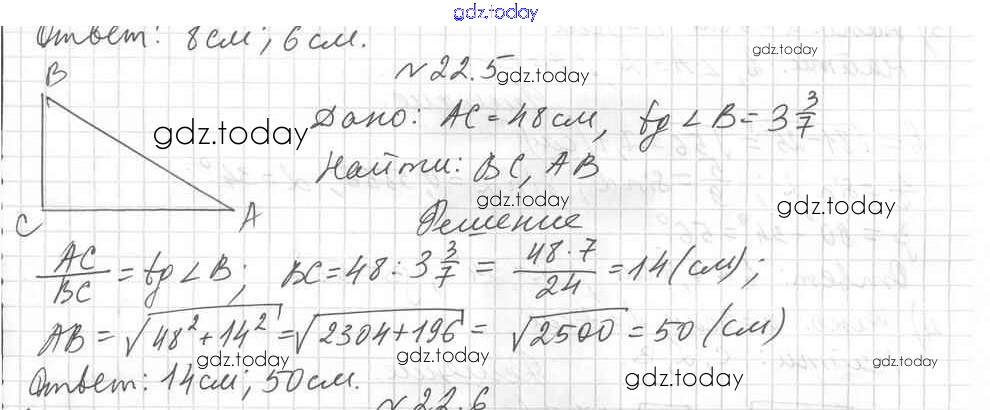 gdz.today
Ответ: 8см; 6см.
gdz.today
№22.5
gdz.today
B
Дано: AC=48см, tg∠B=3 3/7
gdz.today
Найти: BC, AB
gdz.today
gdz.today
C
A
Решение
AC/BC = tg∠B; BC=48:3 3/7 = 48·7/24 = 14(см);
AB = √48²+14² = √2304+196 = √2500 = 50 (см)
gdz.today
gdz.today
gdz.today
Ответ: 14см; 50см.
gdz.today
№22.6